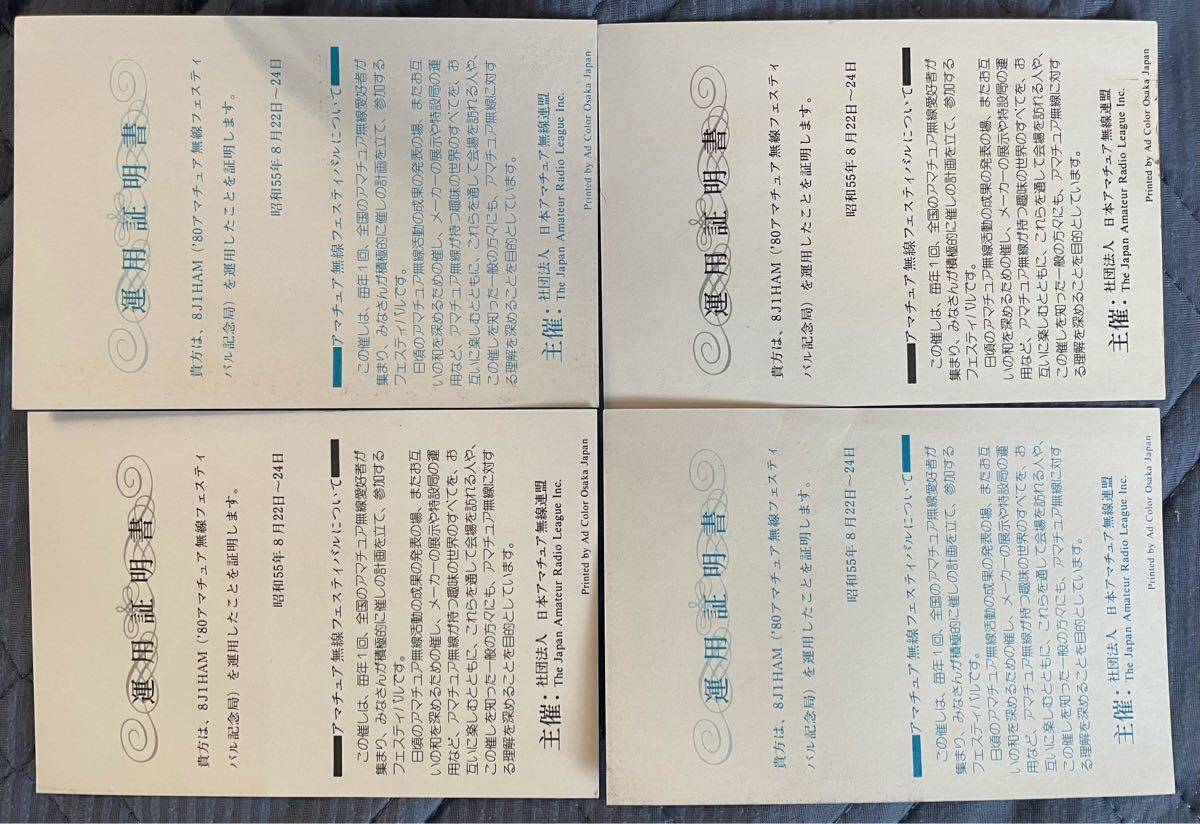 運用証明書
貴方は、8J1HAM ('80アマチュア無線フェスティ
バル記念局) を運用したことを証明します。
昭和55年8月22日〜24日
アマチュア無線フェスティバルについて
この催しは、毎年1回、全国のアマチュア無線愛好者が
集まり、みなさんが積極的に催しの計画を立て、参加する
フェスティバルです。
日頃のアマチュア無線活動の成果の発表の場、またお互
いの和を深めるための催し、メーカーの展示や特設局の運
用など、アマチュア無線が持つ趣味の世界のすべてを、お
互いに楽しむとともに、これらを通して会場を訪れる人や、
この催しを知った一般の方々にも、アマチュア無線に対す
る理解を深めることを目的としています。
主催：社団法人 日本アマチュア無線連盟
The Japan Amateur Radio League Inc.
Printed by Ad Color Osaka Japan
運用証明書
貴方は、8J1HAM ('80アマチュア無線フェスティ
バル記念局) を運用したことを証明します。
昭和55年8月22日〜24日
アマチュア無線フェスティバルについて
この催しは、毎年1回、全国のアマチュア無線愛好者が
集まり、みなさんが積極的に催しの計画を立て、参加する
フェスティバルです。
日頃のアマチュア無線活動の成果の発表の場、またお互
いの和を深めるための催し、メーカーの展示や特設局の運
用など、アマチュア無線が持つ趣味の世界のすべてを、お
互いに楽しむとともに、これらを通して会場を訪れる人や、
この催しを知った一般の方々にも、アマチュア無線に対す
る理解を深めることを目的としています。
主催：社団法人 日本アマチュア無線連盟
The Japan Amateur Radio League Inc.
Printed by Ad Color Osaka Japan
運用証明書
貴方は、8J1HAM ('80アマチュア無線フェスティ
バル記念局) を運用したことを証明します。
昭和55年8月22日〜24日
アマチュア無線フェスティバルについて
この催しは、毎年1回、全国のアマチュア無線愛好者が
集まり、みなさんが積極的に催しの計画を立て、参加する
フェスティバルです。
日頃のアマチュア無線活動の成果の発表の場、またお互
いの和を深めるための催し、メーカーの展示や特設局の運
用など、アマチュア無線が持つ趣味の世界のすべてを、お
互いに楽しむとともに、これらを通して会場を訪れる人や、
この催しを知った一般の方々にも、アマチュア無線に対す
る理解を深めることを目的としています。
主催：社団法人 日本アマチュア無線連盟
The Japan Amateur Radio League Inc.
Printed by Ad Color Osaka Japan
運用証明書
貴方は、8J1HAM ('80アマチュア無線フェスティ
バル記念局) を運用したことを証明します。
昭和55年8月22日〜24日
アマチュア無線フェスティバルについて
この催しは、毎年1回、全国のアマチュア無線愛好者が
集まり、みなさんが積極的に催しの計画を立て、参加する
フェスティバルです。
日頃のアマチュア無線活動の成果の発表の場、またお互
いの和を深めるための催し、メーカーの展示や特設局の運
用など、アマチュア無線が持つ趣味の世界のすべてを、お
互いに楽しむとともに、これらを通して会場を訪れる人や、
この催しを知った一般の方々にも、アマチュア無線に対す
る理解を深めることを目的としています。
主催：社団法人 日本アマチュア無線連盟
The Japan Amateur Radio League Inc.
Printed by Ad Color Osaka Japan